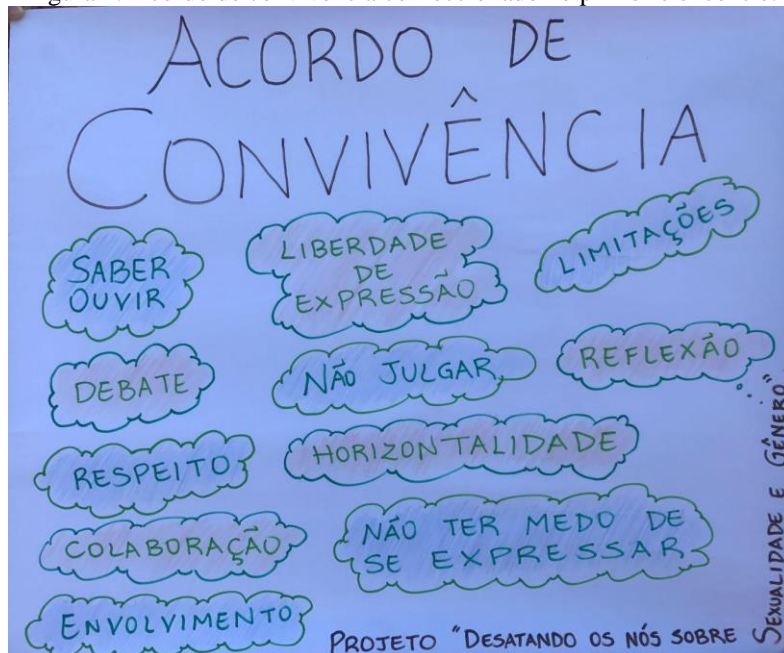 ACORDO DE
CONVIVÊNCIA
SABER
OUVIR
LIBERDADE
DE
EXPRESSÃO
LIMITAÇÕES
DEBATE
NÃO JULGAR
REFLEXÃO
RESPEITO
HORIZONTALIDADE
COLABORAÇÃO
NÃO TER MEDO DE
SE EXPRESSAR
ENVOLVIMENTO
PROJETO "DESATANDO OS NÓS SOBRE
SEXUALIDADE E GÊNERO"